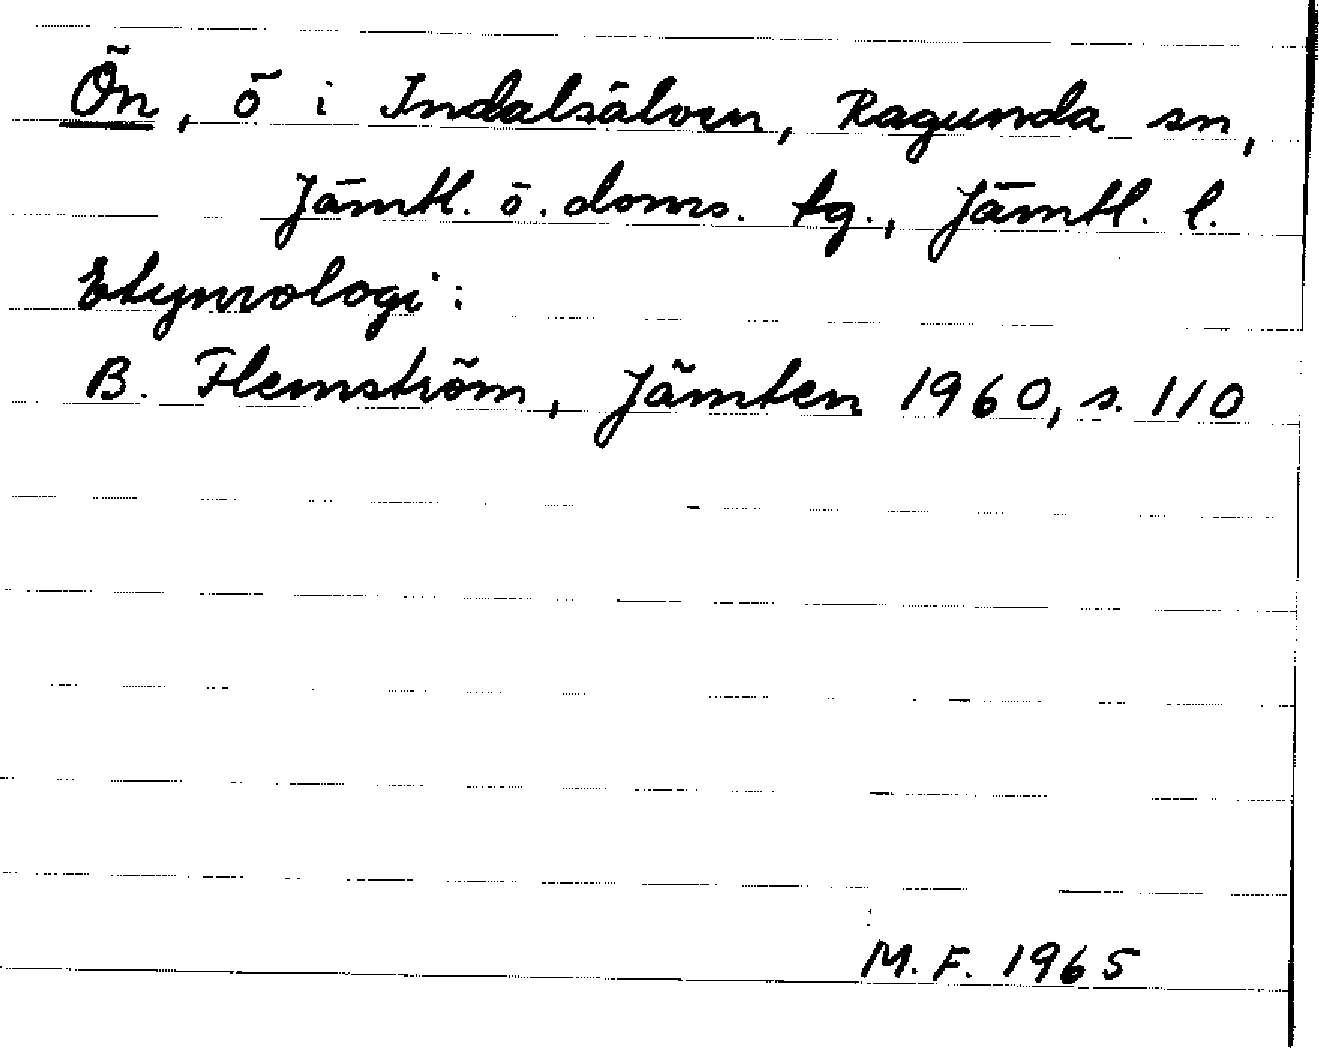 Ön, ö i Indalsälven, Ragunda sn,
Jämtl. ö. doms. tg., Jämtl. l.
Etymologi:
B. Flemström, Jämten 1960, s. 110
M.F. 1965